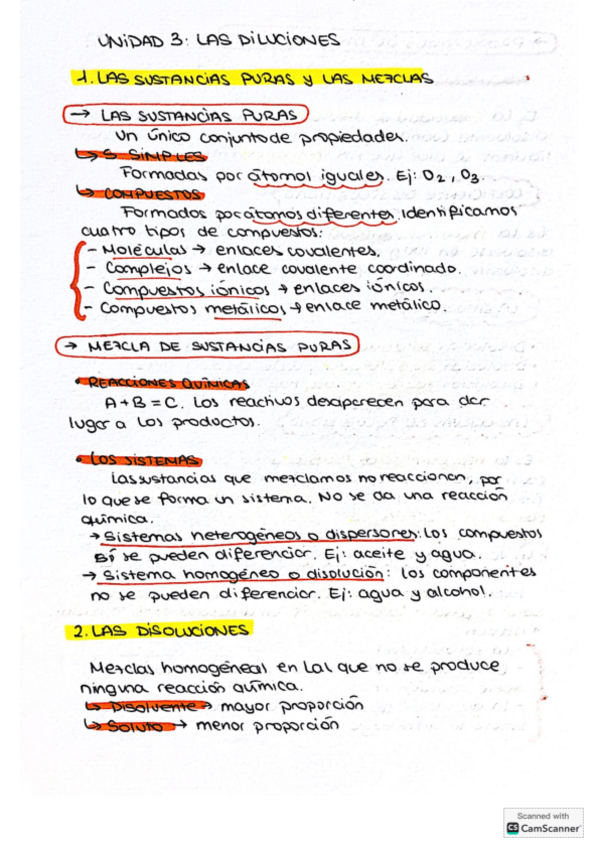 UNIDAD 3: LAS DILUCIONES
1. LAS SUSTANCIAS PURAS Y LAS MEZCLAS
→ LAS SUSTANCIAS PURAS
Un único conjunto de propiedades.
↳ S. SIMPLES
Formadas por átomos iguales. Ej: O2, O3.
↳ COMPUESTOS
Formados por átomos diferentes. Identificamos
cuatro tipos de compuestos:
- Moléculas → enlaces covalentes.
- Complejos → enlace covalente coordinado.
- Compuestos iónicos → enlaces iónicos.
- Compuestos metálicos → enlace metálico.
→ MEZCLA DE SUSTANCIAS PURAS
• REACCIONES QUÍMICAS
A + B = C. Los reactivos desaparecen para dar
lugar a los productos.
• LOS SISTEMAS
Las sustancias que mezclamos no reaccionan, por
lo que se forma un sistema. NO se da una reacción
química.
→ Sistemas heterogéneos o dispersores: los compuestos
sí se pueden diferenciar. Ej: aceite y agua.
→ Sistema homogéneo o disolución: los componentes
no se pueden diferenciar. Ej: agua y alcohol.
2. LAS DISOLUCIONES
Mezclas homogéneas en las que no se produce
ninguna reacción química.
↳ Disolvente → mayor proporción
↳ Soluto → menor proporción
Scanned with
CS CamScanner